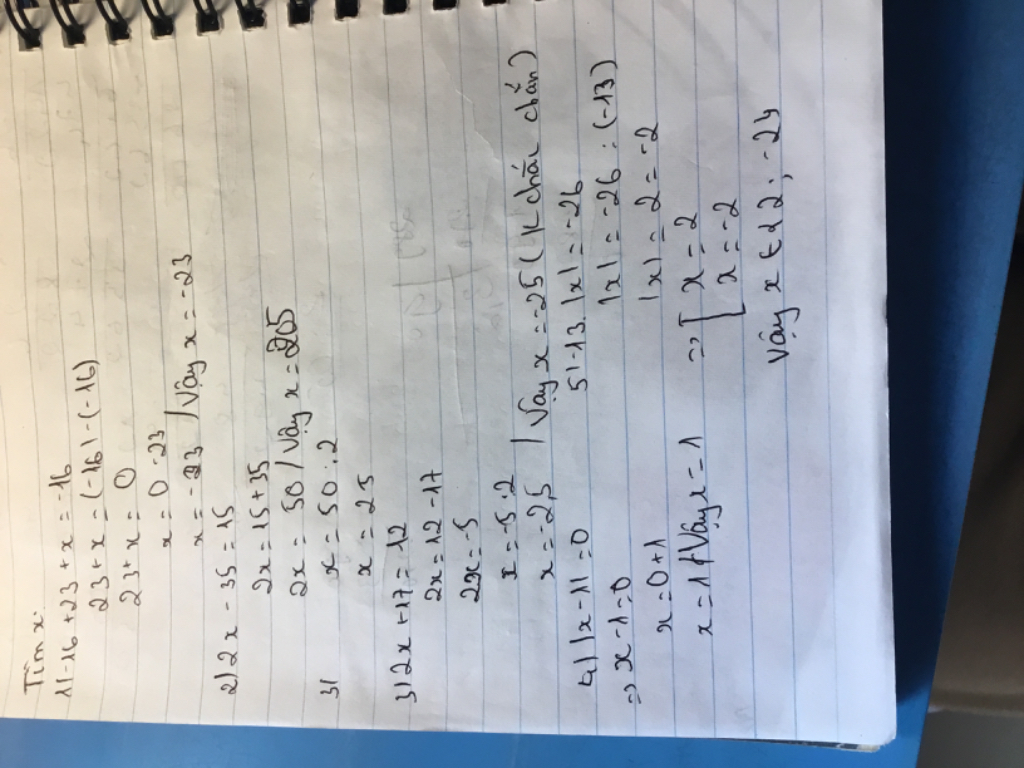 Tìm x:
1) -16 + 23 + x = -16
23 + x = (-16) - (-16)
23 + x = 0
x = 0 - 23
x = -23 / Vậy x = -23
2) 2x - 35 = 15
2x = 15 + 35
2x = 50 / Vậy x = 25
3) x = 50 : 2
x = 25
3) 2x + 17 = 12
2x = 12 - 17
2x = -5
x = -5 : 2
x = -2,5 / Vậy x = -25 (K chắc chắn)
4) |x - 1| = 0
=> x - 1 = 0
x = 0 + 1
x = 1 / Vậy x = 1
5) -13. |x| = -26
|x| = -26 : (-13)
|x| = 2 = -2
=> [ x = 2
x = -2
Vậy x ∈ {2; -2}